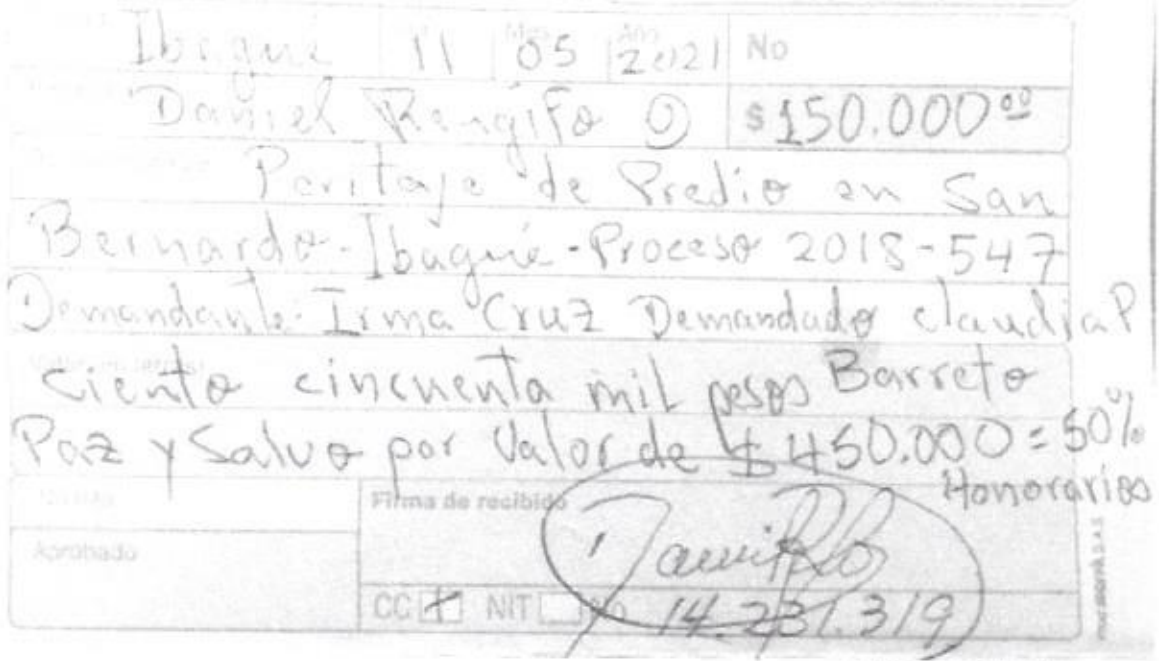 Ibagué 11 Mes 05 Año 2021 No
Daniel Rengifo O $150.000⁰⁰
Peritaje de Predio en San
Bernardo - Ibagué - Proceso 2018-547
Demandante: Irma Cruz Demandado claudia P
Valor (en letras)
Ciento cincuenta mil pesos Barreto
Paz y Salvo por Valor de $450.000 = 50%
Honorarios
Firma de recibido
Aprobado
CC NIT No 14.231.319